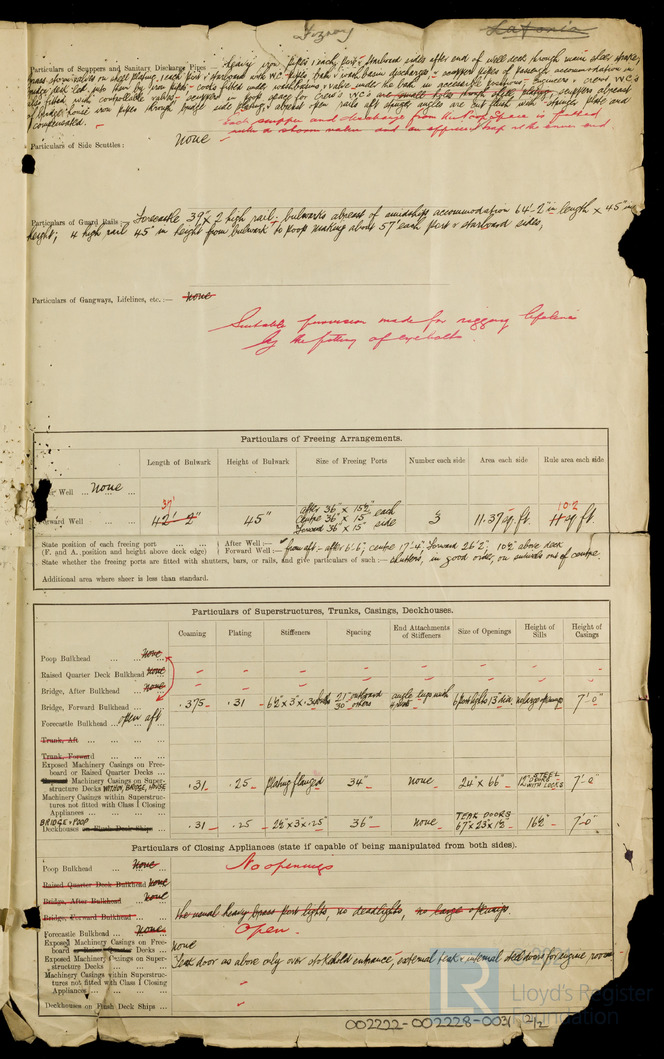 Fitzroy Latonia
Particulars of Scuppers and Sanitary Discharge Pipes :— Heavy iron pipes 1 each, port & starboard sides after end of well deck through main sheer strake,
brass storm valves on shell plating, 1 each port & starboard with WC pipes, bath & wash basin discharge; scupper pipes of passage accommodation in
bridge deck led into them by iron pipes — cocks fitted under washbasins, & valve under the bath in accessible positions — Engineers & crews WC's
also fitted with controllable valves — scuppers in poop space for crew's WC's are small pipes through shell plating, scuppers abreast
of bridge house iron pipes through side plating, abreast open rails aft stringer angles are cut flush with stringer plate and
compensated.
Each scupper and discharge from the Poop Space is fitted
with a storm valve and an efficient trap at the inner end
Particulars of Side Scuttles :
none
Particulars of Guard Rails :— Forecastle 39" x 2 high rail; bulwarks abreast of amidships accommodation 64'-2" in length x 45" in
height; 4 high rail 45" in height from bulwark to poop making about 57' each port & starboard sides,
Particulars of Gangways, Lifelines, etc. :— none
Suitable provision made for rigging lifelines
by the fitting of eyebolts.
Particulars of Freeing Arrangements.
Length of Bulwark Height of Bulwark Size of Freeing Ports Number each side Area each side Rule area each side
After Well none
Forward Well 37' 42'-2" 45" after 36" x 15½" each centre 36" x 15" side forward 36" x 15" 3 11.37 sq. ft. 10.2 11 sq. ft.
State position of each freeing port (F. and A. position and height above deck edge) After Well :—
Forward Well :— from aft :— after 6'-6"; centre 17'-4"; forward 26'-2"; 10½" above deck
State whether the freeing ports are fitted with shutters, bars, or rails, and give particulars of such :— shutters, in good order, on swivels out of centre.
Additional area where sheer is less than standard.
Particulars of Superstructures, Trunks, Casings, Deckhouses.
Coaming Plating Stiffeners Spacing End Attachments of Stiffeners Size of Openings Height of Sills Height of Casings
Poop Bulkhead none
Raised Quarter Deck Bulkhead none
Bridge, After Bulkhead none
Bridge, Forward Bulkhead .375 .31 6½" x 3" x .3 27" outboard 30" others angle lugs with 6 Port lights 13" dia. no large openings 7'-0"
Forecastle Bulkhead open aft
Trunk, Aft
Trunk, Forward
Exposed Machinery Casings on Freeboard or Raised Quarter Decks
Exposed Machinery Casings on Superstructure Decks WITHIN BRIDGE HOUSE .31 .25 Plating flanged 34" none 24" x 66" 12" STEEL DOORS WITH LOCKS 7'-0"
Machinery Casings within Superstructures not fitted with Class 1 Closing Appliances
BRIDGE & POOP
Deckhouses on Flush Deck Ships .31 .25 2½" x 3" x .25" 36" none TEAK DOORS 67" x 23" x 1½" 16½" 7'-0"
Particulars of Closing Appliances (state if capable of being manipulated from both sides).
Poop Bulkhead none No openings
Raised Quarter Deck Bulkhead none
Bridge, After Bulkhead none
Bridge, Forward Bulkhead the usual heavy brass port lights, no deadlights, no large openings.
Forecastle Bulkhead none Open.
Exposed Machinery Casings on Freeboard or Raised Quarter Decks none
Exposed Machinery Casings on Superstructure Decks Teak door as above only over stokehold entrance, external teak & internal steel doors for engine room
Machinery Casings within Superstructures not fitted with Class 1 Closing Appliances
Deckhouses on Flush Deck Ships
LR Lloyd's Register Foundation
002222-002228-0031 2/2